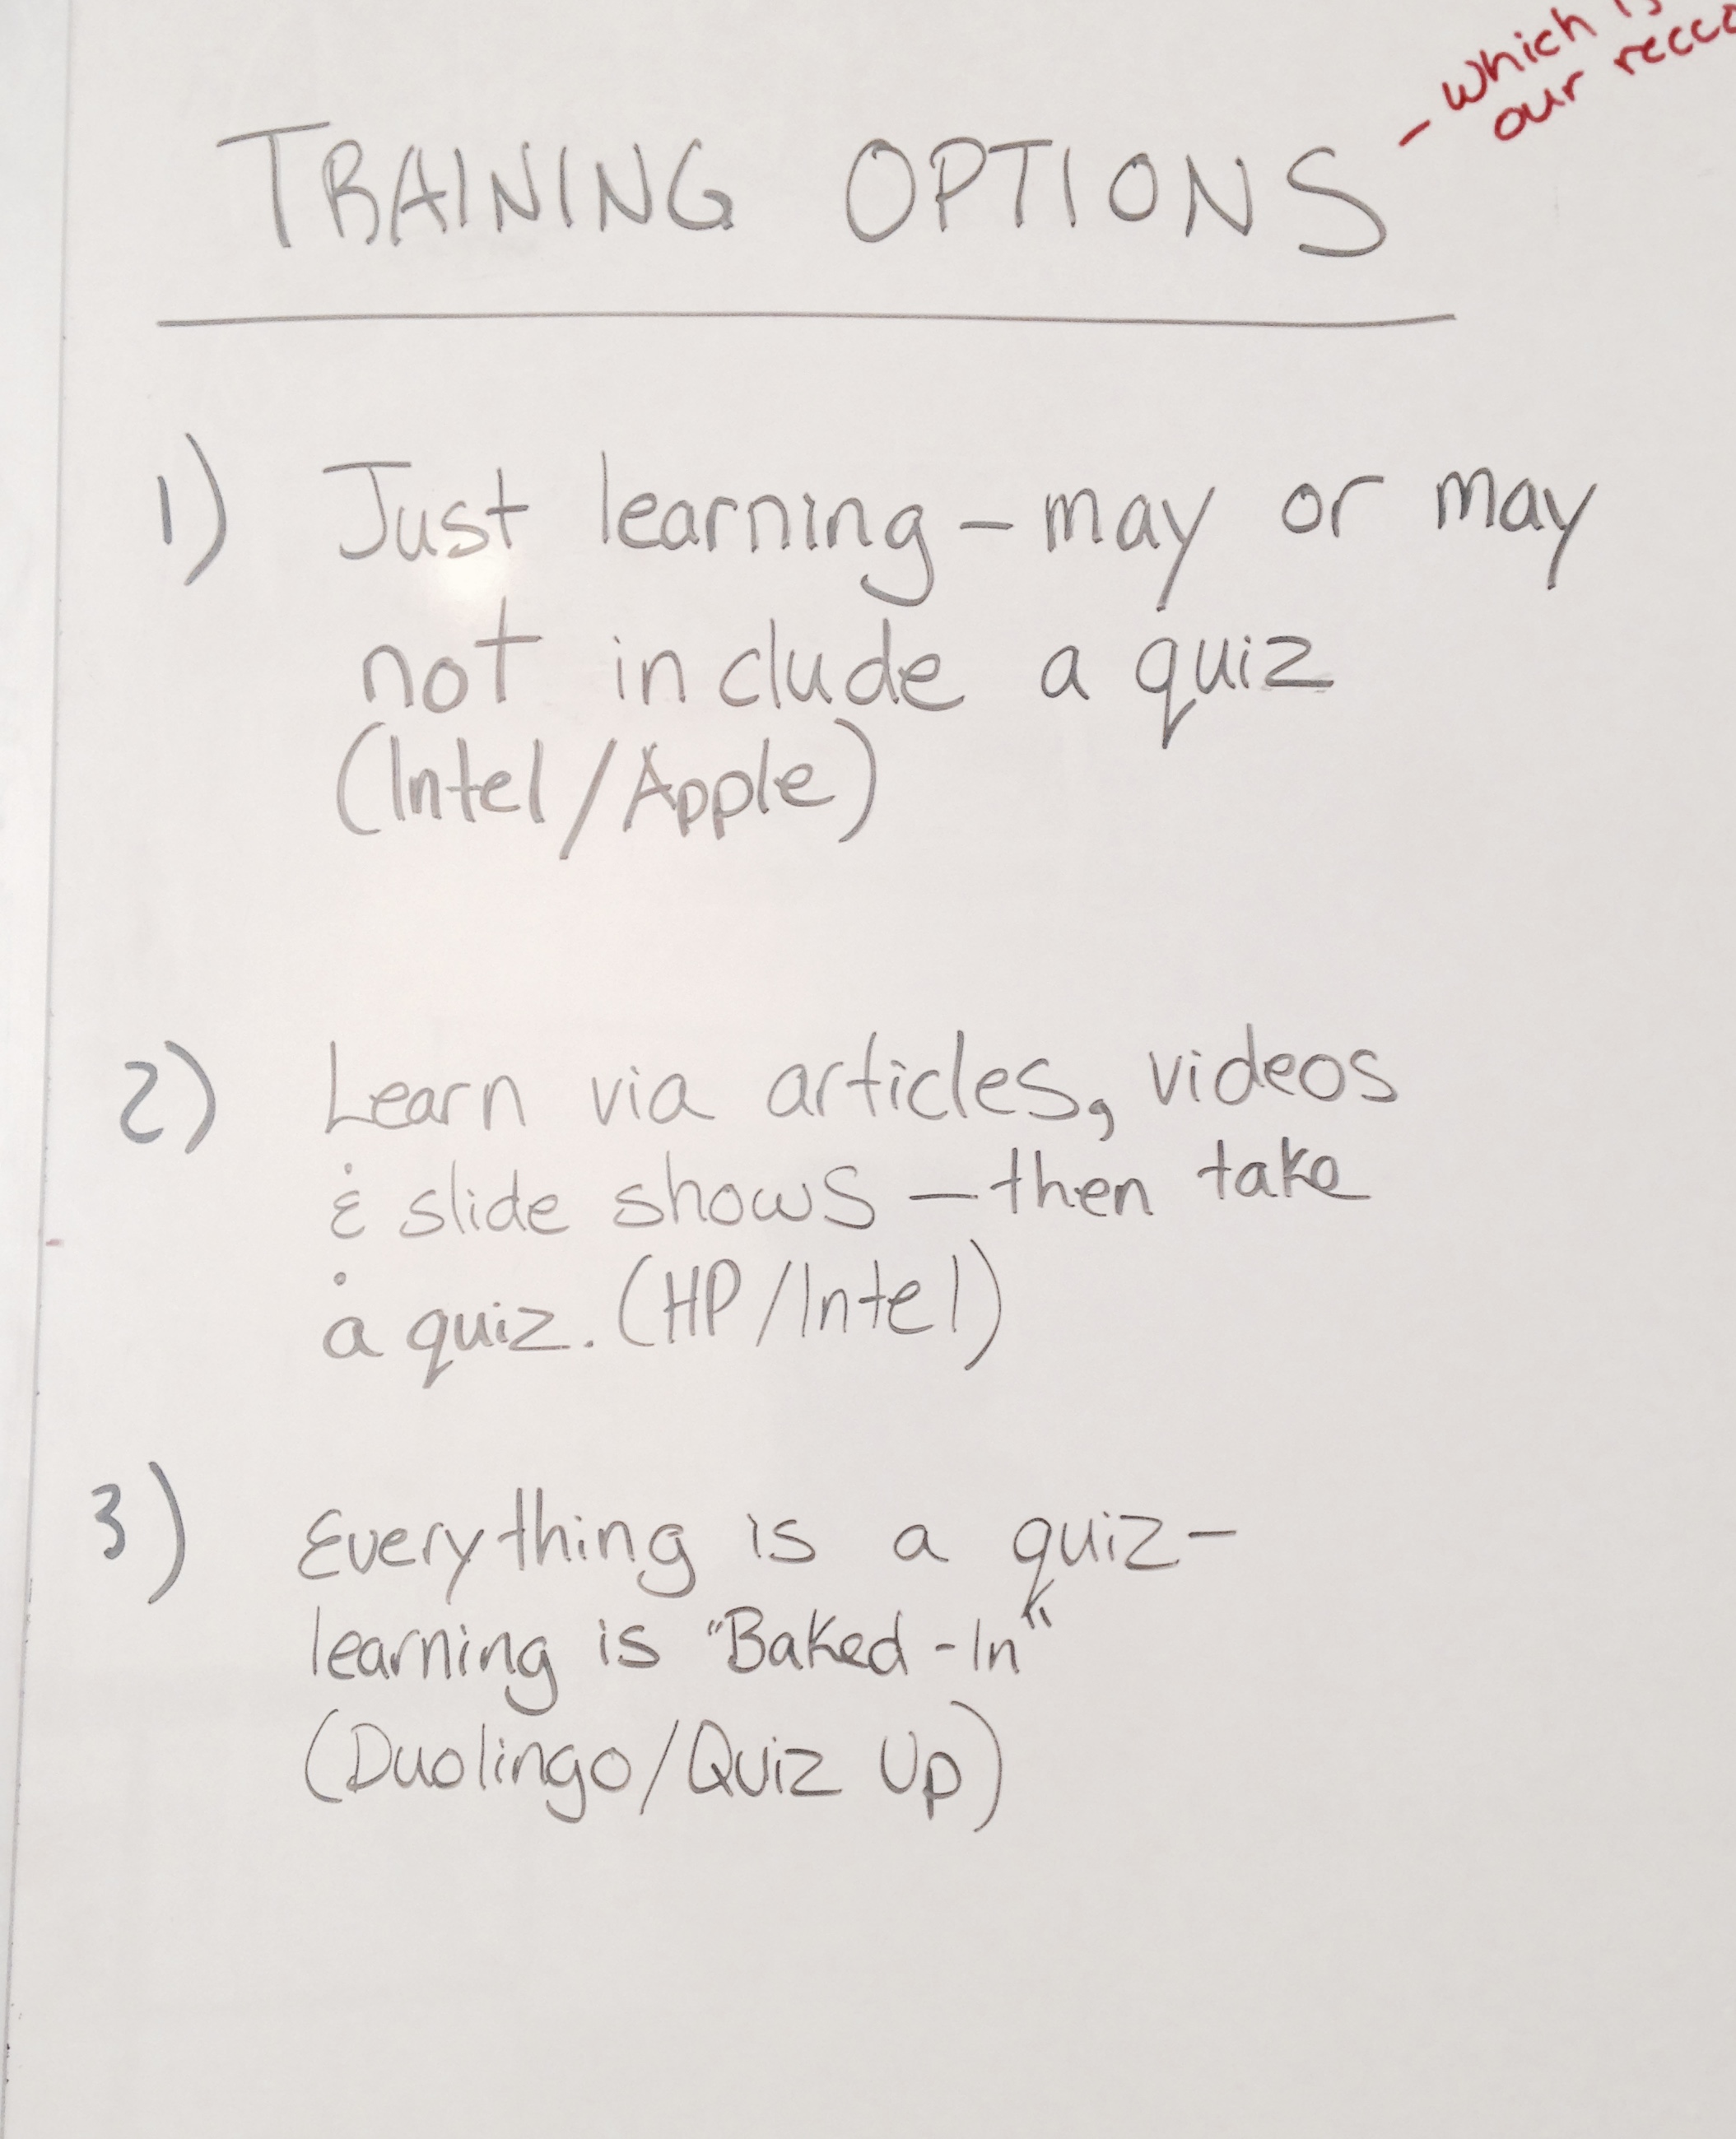 - which is
our
TRAINING OPTIONS
1) Just learning - may or may
not include a quiz
(Intel/Apple)
2) Learn via articles, videos
& slide shows - then take
a quiz. (HP/Intel)
3) Everything is a quiz -
learning is "Baked-In"
(Duolingo/Quiz Up)